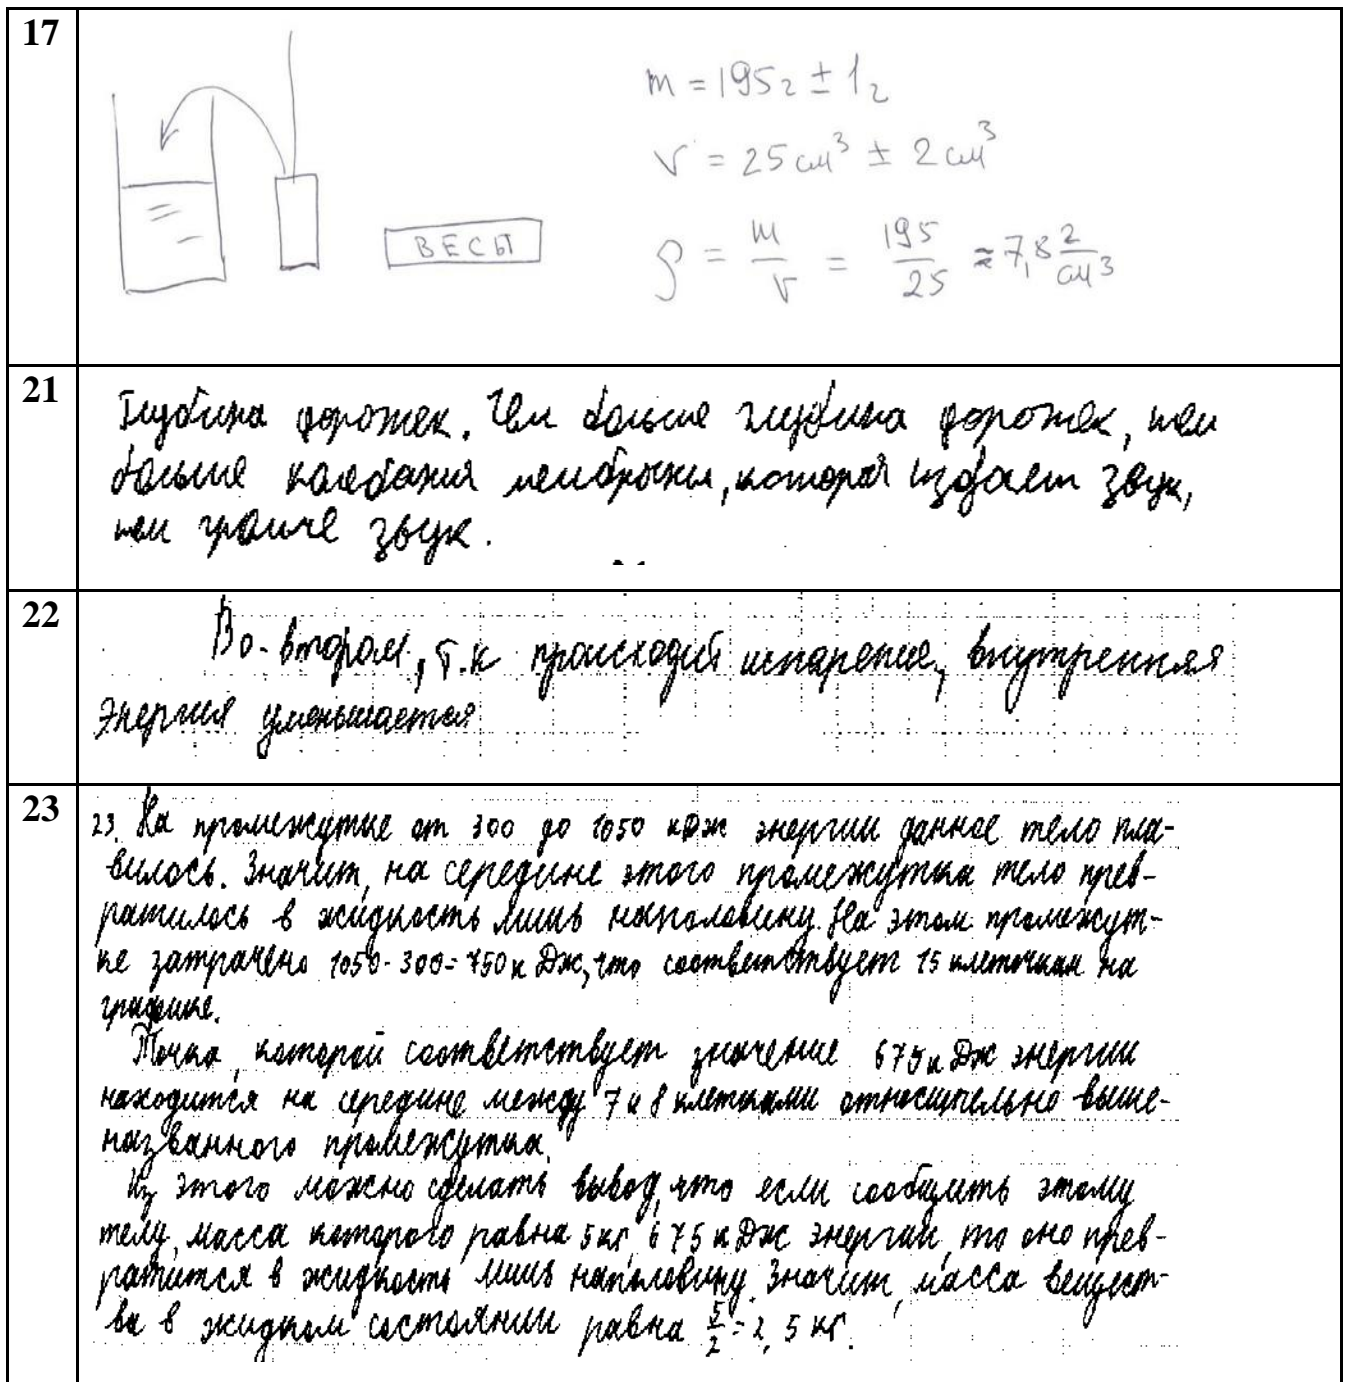 17
m = 195г ± 1г
V = 25 см³ ± 2 см³
ВЕСЫ
ρ = m/V = 195/25 ≈ 7,8 г/см³
21
Глубина дорожек. Чем больше глубина дорожек, тем
больше колебания мембраны, которая издает звук,
тем громче звук.
22
Во-втором, т.к происходит испарение, внутренняя
энергия уменьшается
23
23. На промежутке от 300 до 1050 кДж энергии данное тело пла-
вилось. Значит, на середине этого промежутка тело прев-
ратилось в жидкость лишь наполовину. На этом промежут-
ке затрачено 1050-300=750 кДж, что соответствует 15 клеточкам на
графике.
Точка, которой соответствует значение 675 кДж энергии
находится на середине между 7 и 8 клетками относительно выше-
названного промежутка.
Из этого можно сделать вывод, что если сообщить этому
телу, масса которого равна 5 кг, 675 кДж энергии, то оно прев-
ратится в жидкость лишь наполовину. Значит, масса вещест-
ва в жидком состоянии равна 5/2 = 2,5 кг.